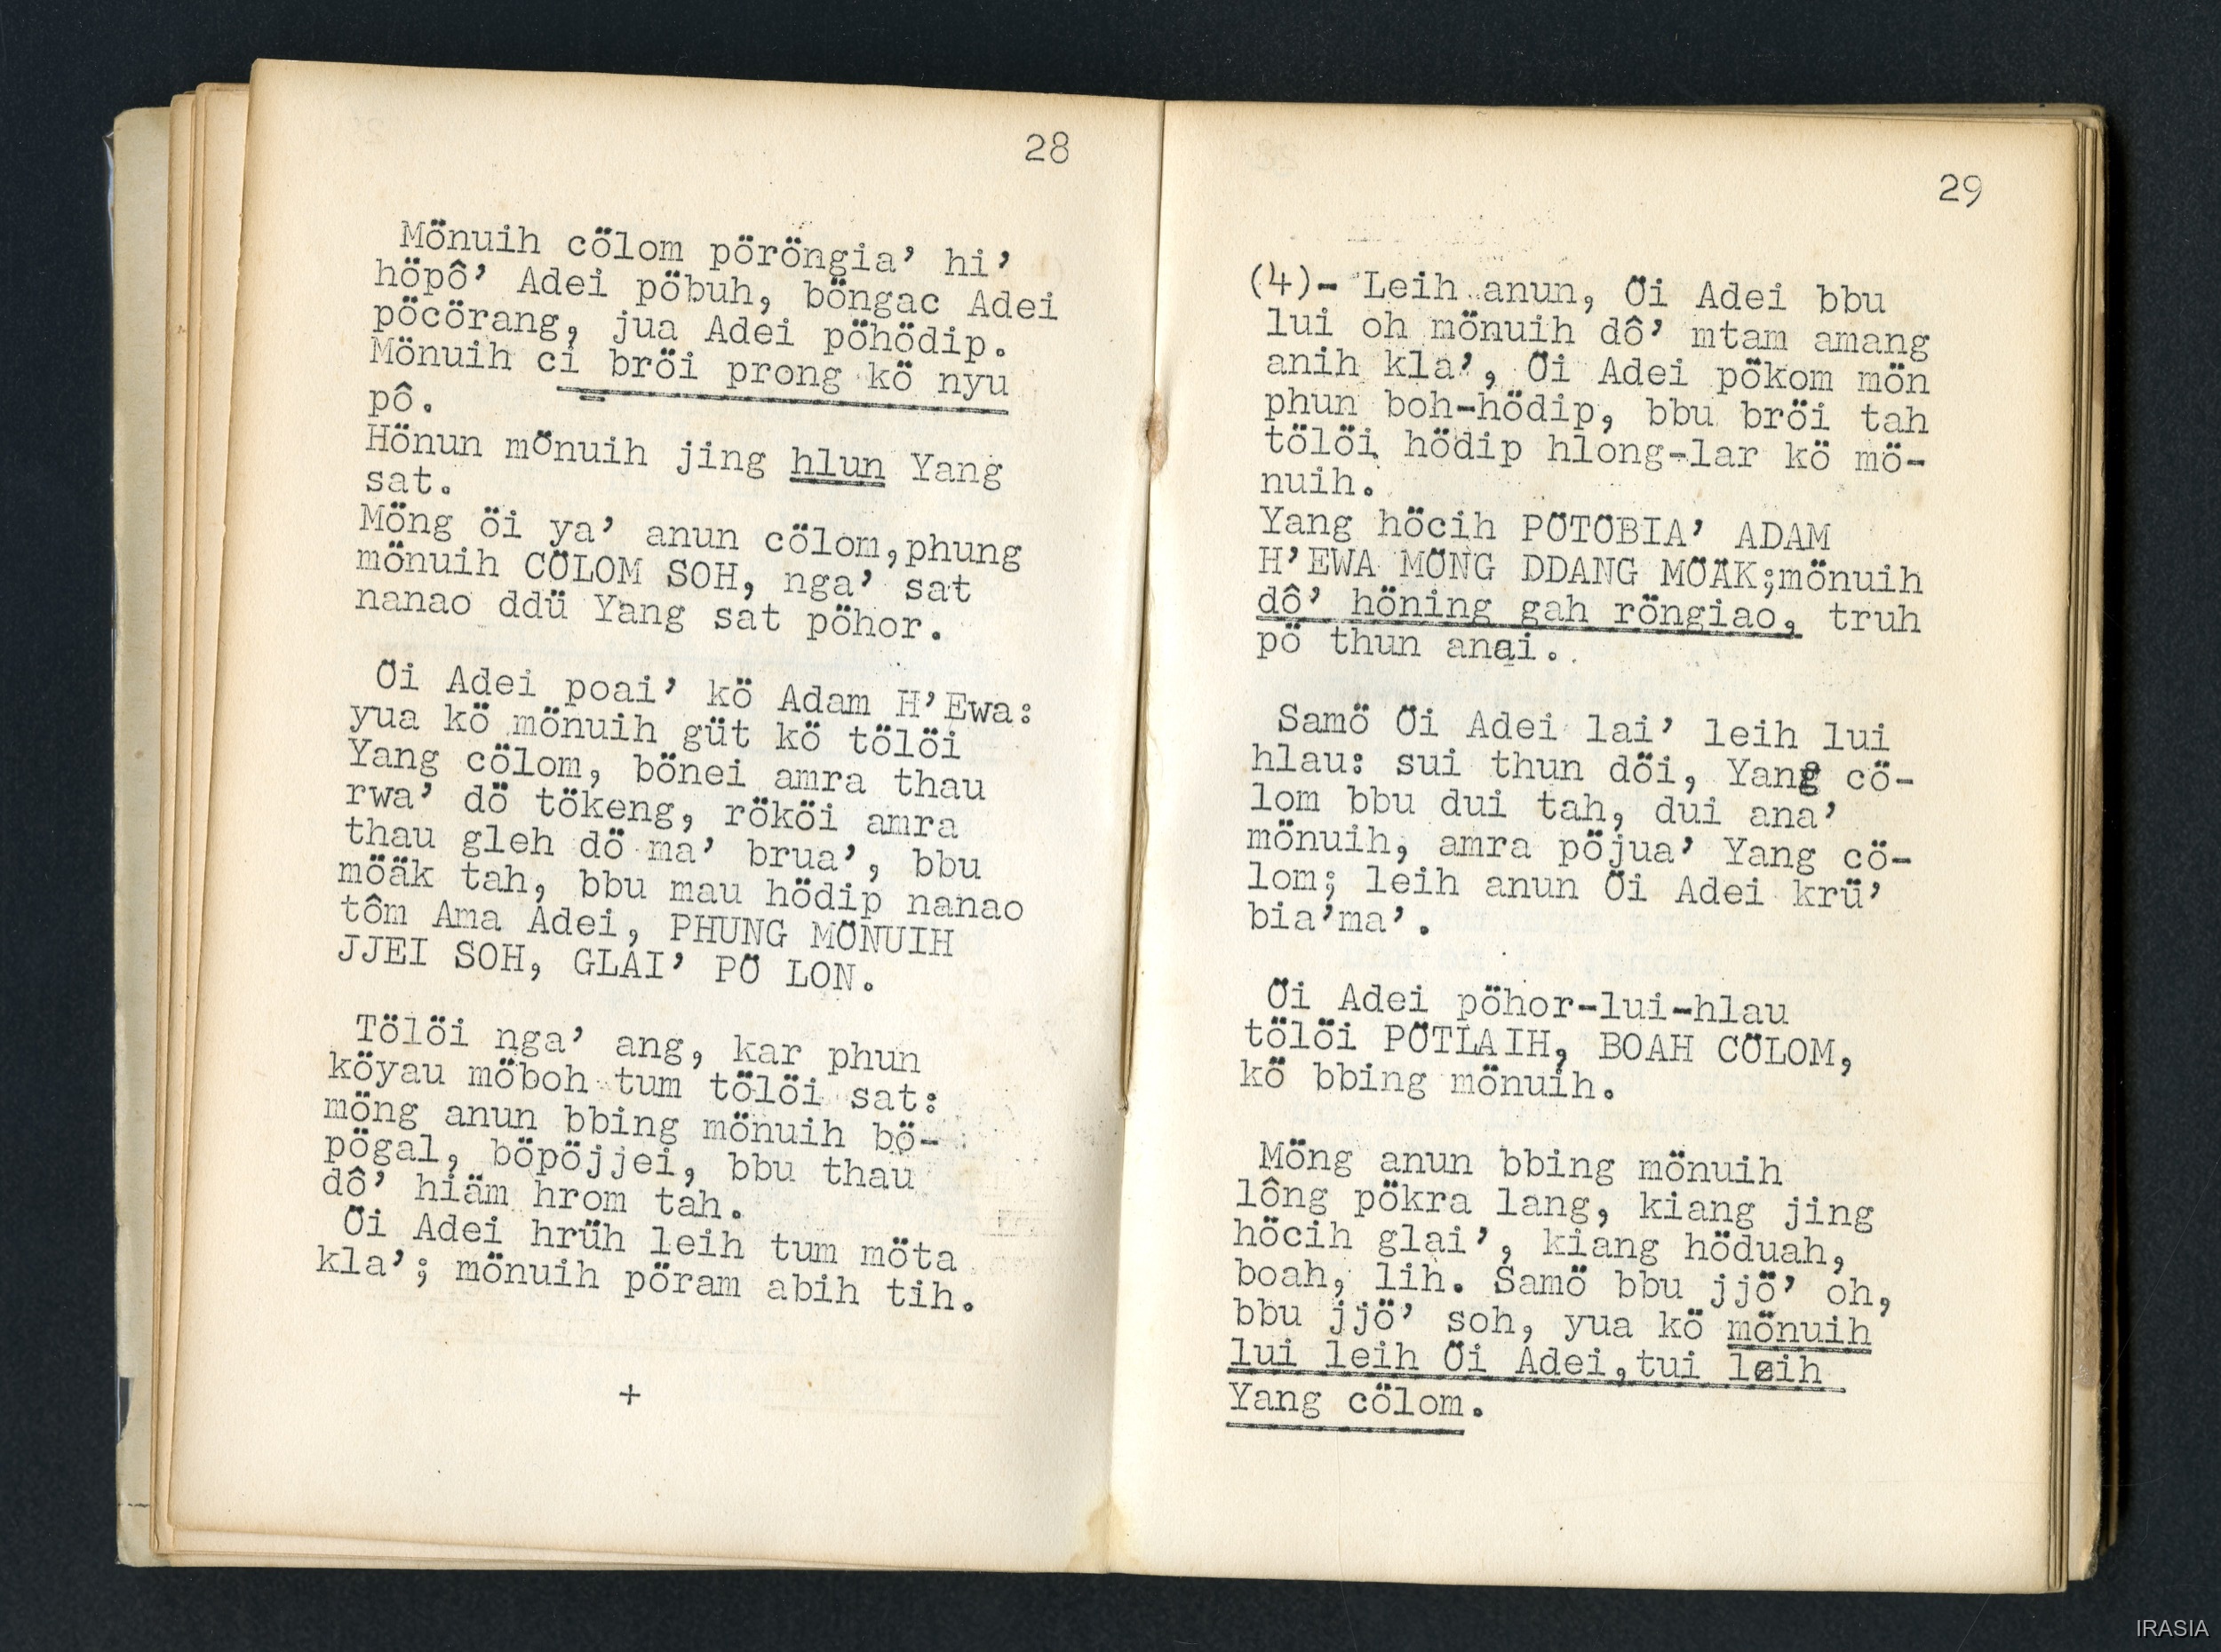 28
Mönuih cölom pöröngia’ hi’
höpô’ Adei pöbuh, böngac Adei
pöcörang, jua Adei pöhödip.
Mönuih ci bröi prong kö nyu
pô.
Hönun mönuih jing hlun Yang
sat.
Möng öi ya’ anun cölom,phung
mönuih CÖLOM SOH, nga’ sat
nanao ddü Yang sat pöhor.
Öi Adei poai’ kö Adam H’Ewa:
yua kö mönuih güt kö tölöi
Yang cölom, bönei amra thau
rwa’ dö tökeng, rököi amra
thau gleh dö ma’ brua’, bbu
möäk tah, bbu mau hödip nanao
tôm Ama Adei, PHUNG MÖNUIH
JJEI SOH, GLAI’ PÖ LON.
Tölöi nga’ ang, kar phun
köyau möboh tum tölöi sat:
möng anun bbing mönuih bö-
pögal, böpöjjei, bbu thau
dô’ hiäm hrom tah.
Öi Adei hrüh leih tum möta
kla’; mönuih pöram abih tih.
+
29
(4)- Leih anun, Öi Adei bbu
lui oh mönuih dô’ mtam amang
anih kla’, Öi Adei pökom mön
phun boh-hödip, bbu bröi tah
tölöi hödip hlong-lar kö mö-
nuih.
Yang höcih PÖTÖBIA’ ADAM
H’EWA MÖNG DDANG MÖÄK;mönuih
dô’ höning gah röngiao, truh
pö thun anai.
Samö Öi Adei lai’ leih lui
hlau: sui thun döi, Yang cö-
lom bbu dui tah, dui ana’
mönuih, amra pöjua’ Yang cö-
lom; leih anun Öi Adei krü’
bia’ma’.
Öi Adei pöhor-lui-hlau
tölöi PÖTLAIH, BOAH CÖLOM,
kö bbing mönuih.
Möng anun bbing mönuih
lông pökra lang, kiang jing
höcih glai’, kiang höduah,
boah, lih. Samö bbu jjö’ oh,
bbu jjö’ soh, yua kö mönuih
lui leih Öi Adei,tui leih
Yang cölom.
IRASIA